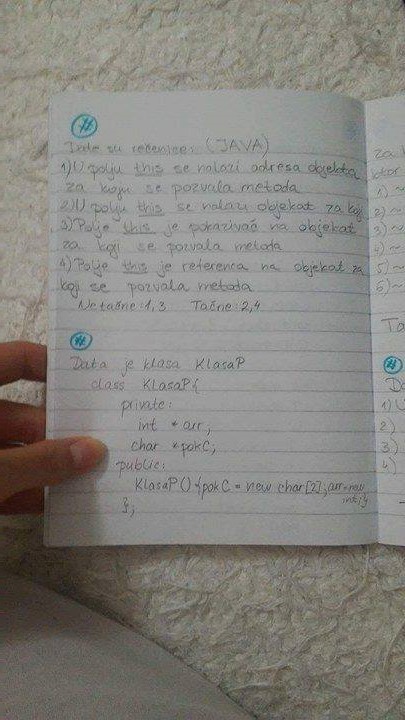 #
Date su rečenice: (JAVA)
1) U polju this se nalazi adresa objekta
za koju se pozvala metoda
2) U polju this se nalazi objekat za koji
3) Polje this je pokazivač na objekat
za koji se pozvala metoda
4) Polje this je referenca na objekat za
koji se pozvala metoda
Netačne: 1,3 Tačne: 2,4
#
Data je klasa KlasaP
class KlasaP{
private:
int *arr;
char *pokC;
public:
KlasaP() {pokC = new char[2]; arr=new
int;}
};
za k
1) ~
2) ~
3) ~
4) ~
5) ~
6) ~
Ta
#
1) U
2)
3)
4)